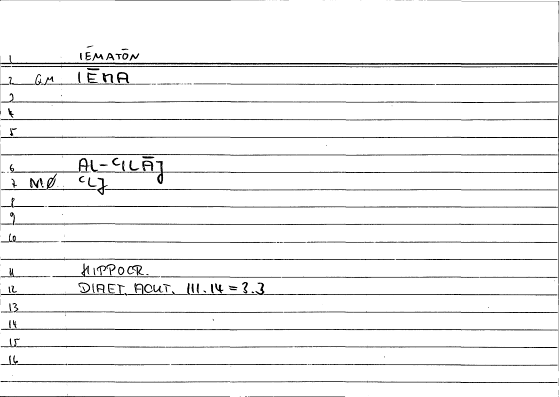 1 IĒMATŌN
2 GM IĒMA
3
4
5
6 AL-ʿILĀJ
7 MØ ʿLJ
8
9
10
11 HIPPOCR.
12 DIAET. ACUT. III.14 = ?.3
13
14
15
16